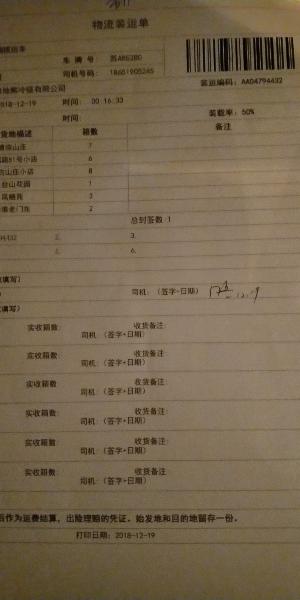 物流装运单
车 牌 号：
司机号码： 18651905245
装运编码：AA04794432
冷链有限公司
018-12-19 时间： 00:16:33 装载率：50%
时间： 备注
货地描述 箱数
山庄 7
路81号小店 6
山庄小店 8
台山花园 1
凤栖苑 3
老门东 2
总封签数:1
94432 3.
6.
填写）
司机：（签字+日期）
填写）
实收箱数： 收货备注：
司机：（签字+日期）
实收箱数： 收货备注：
司机：（签字+日期）
实收箱数 收货备注：
司机：（签字+日期）
实收箱数： 收货备注：
司机：（签字+日期）
实收箱数： 收货备注：
司机：（签字+日期）
实收箱数： 收货备注：
司机：（签字+日期）
后作为运费结算，出险理赔的凭证。始发地和目的地留存一份。
打印日期：2018-12-19